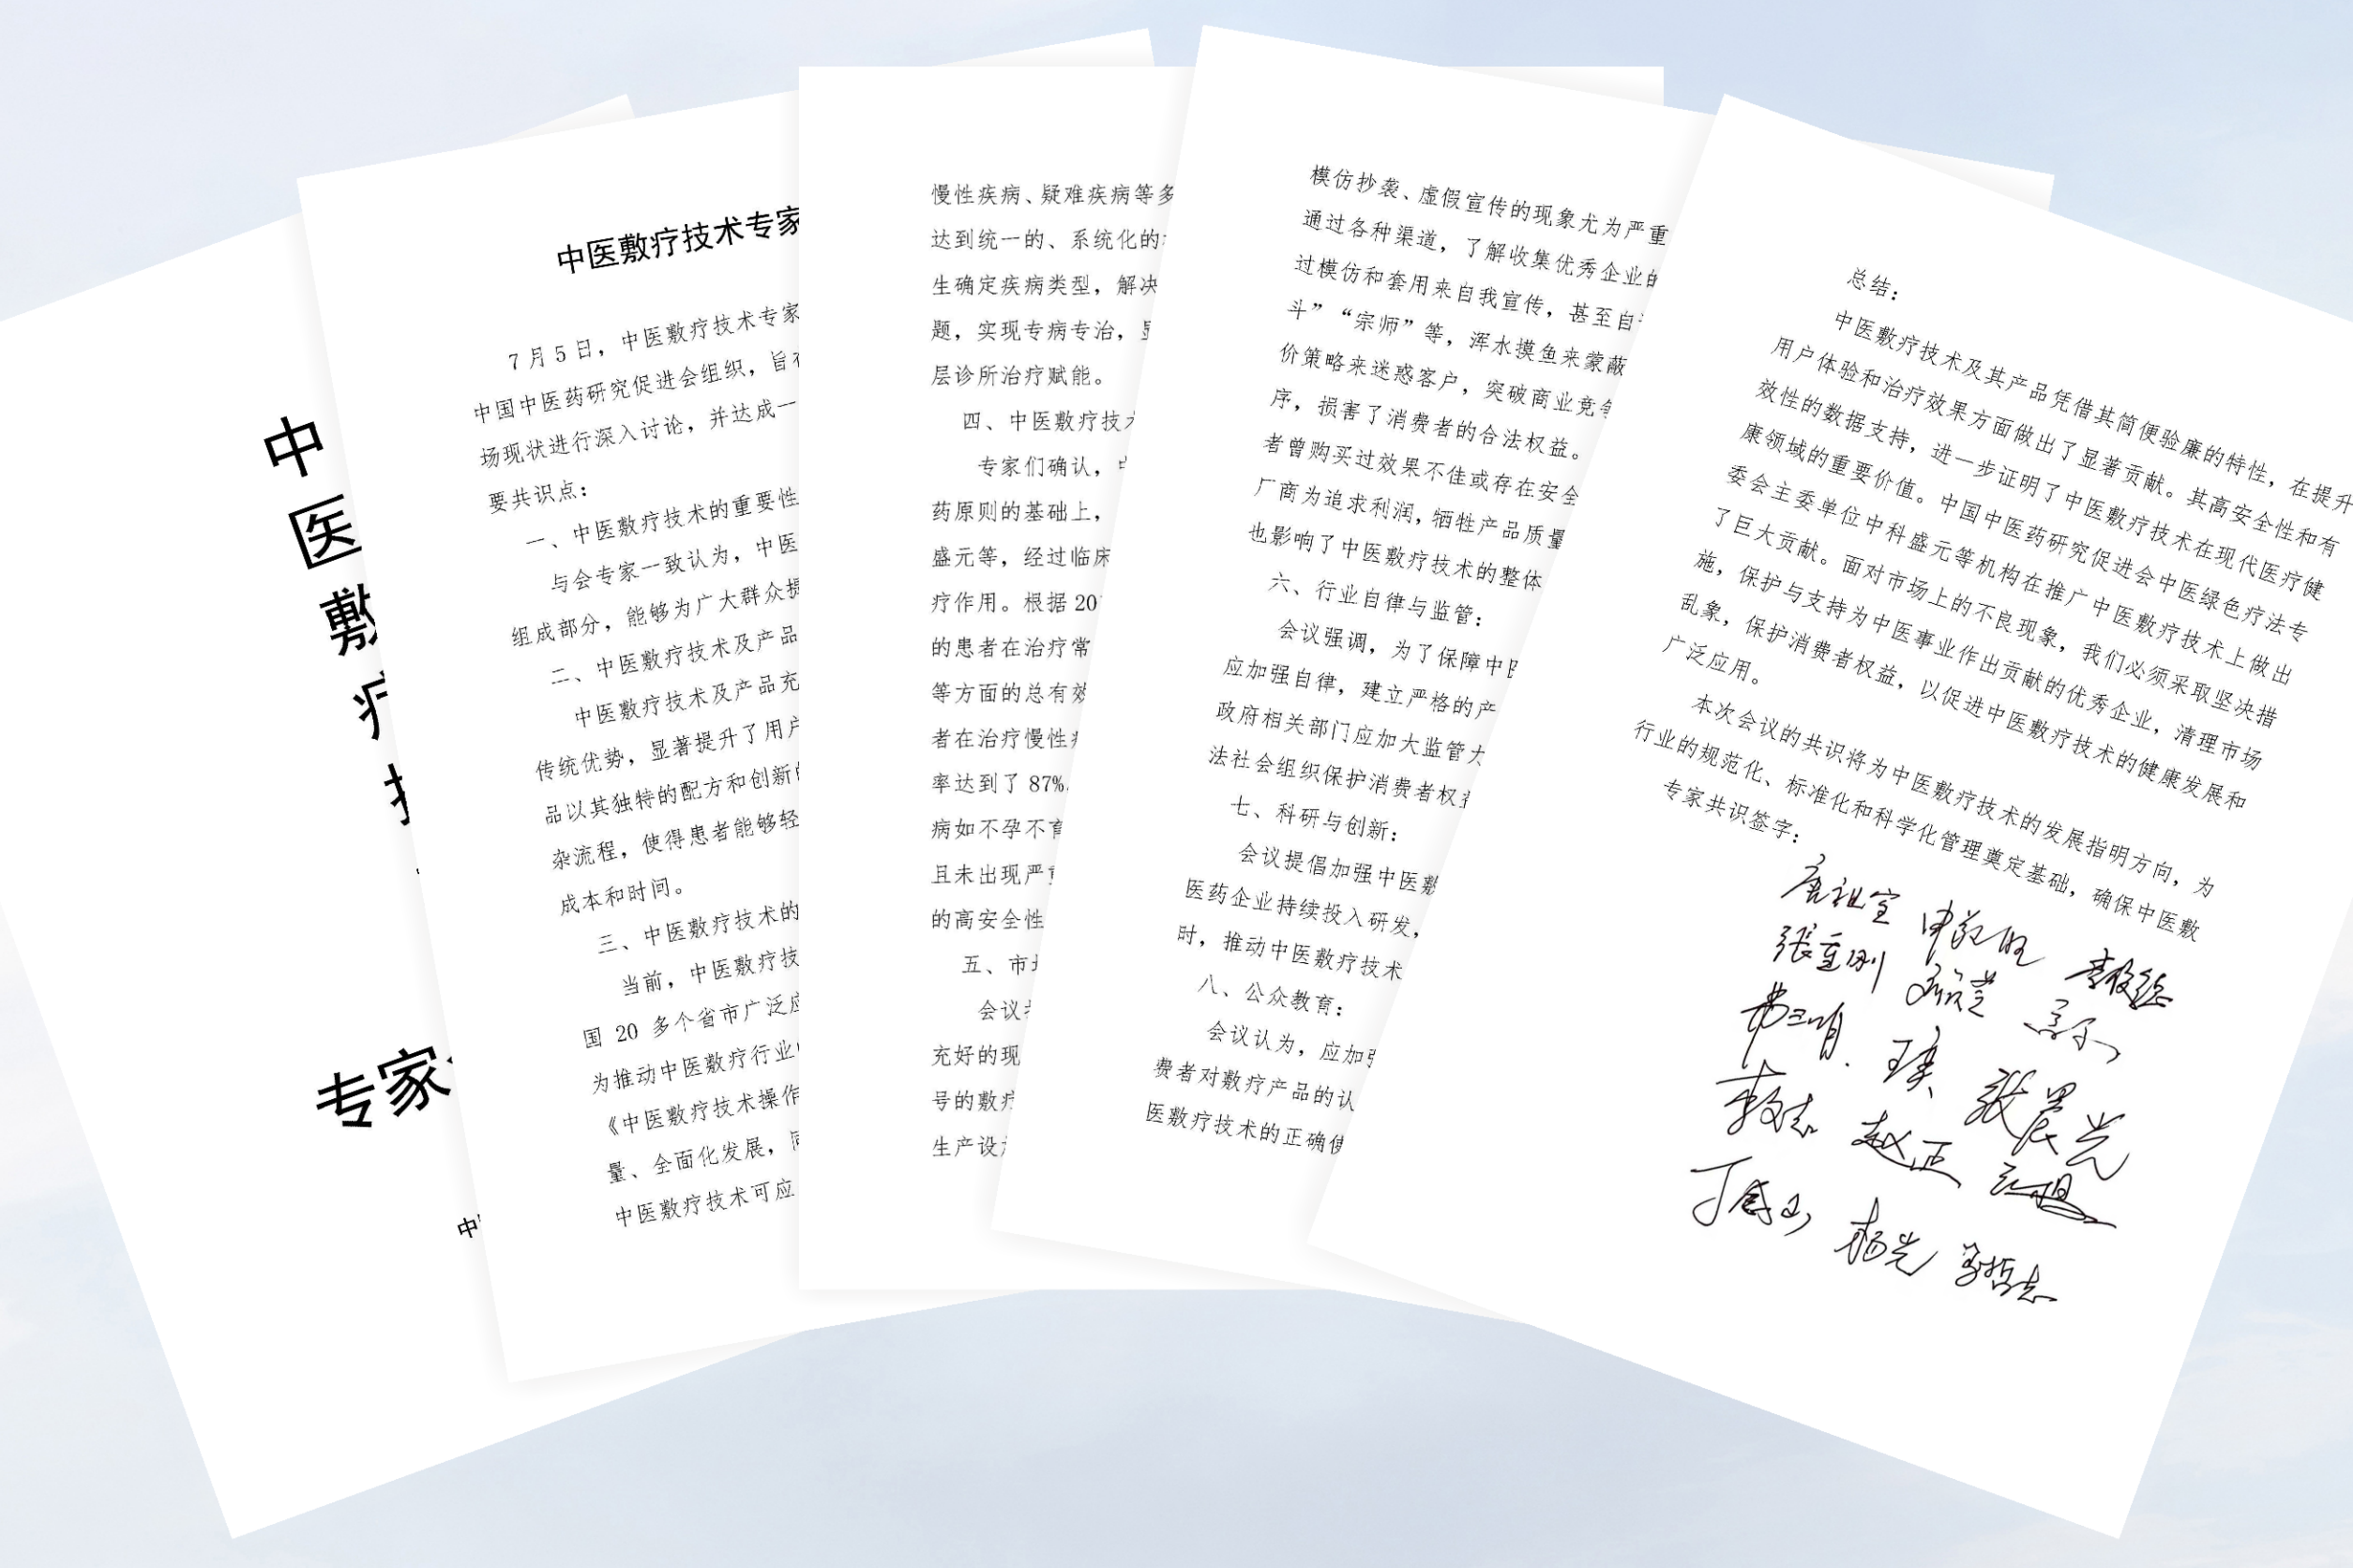 中
医
敷
疗
专家
中
中医敷疗技术专家
7月5日，中医敷疗技术专家
中国中医药研究促进会组织，旨在
场现状进行深入讨论，并达成一
要共识点：
一、中医敷疗技术的重要性
与会专家一致认为，中医
组成部分，能够为广大群众提
二、中医敷疗技术及产品
中医敷疗技术及产品充
传统优势，显著提升了用户
品以其独特的配方和创新的
杂流程，使得患者能够轻
成本和时间。
三、中医敷疗技术的
当前，中医敷疗技
国 20 多个省市广泛应
为推动中医敷疗行业
《中医敷疗技术操作
量、全面化发展，同
中医敷疗技术可应
慢性疾病、疑难疾病等多
达到统一的、系统化的
生确定疾病类型，解决
题，实现专病专治，显
层诊所治疗赋能。
四、中医敷疗技术
专家们确认，中
药原则的基础上，
盛元等，经过临床
疗作用。根据 20
的患者在治疗常
等方面的总有效
者在治疗慢性
率达到了 87%
病如不孕不育
且未出现严重
的高安全性
五、市场
会议
充好的现
号的敷疗
生产设
模仿抄袭、虚假宣传的现象尤为严重
通过各种渠道，了解收集优秀企业的
过模仿和套用来自我宣传，甚至自
斗”“宗师”等，浑水摸鱼来蒙蔽
价策略来迷惑客户，突破商业竞争
序，损害了消费者的合法权益。
者曾购买过效果不佳或存在安全
厂商为追求利润，牺牲产品质量
也影响了中医敷疗技术的整体
六、行业自律与监管：
会议强调，为了保障中医
应加强自律，建立严格的产
政府相关部门应加大监管力
法社会组织保护消费者权益
七、科研与创新：
会议提倡加强中医敷
医药企业持续投入研发，
时，推动中医敷疗技术
八、公众教育：
会议认为，应加强
费者对敷疗产品的认
医敷疗技术的正确使
总结：
中医敷疗技术及其产品凭借其简便验廉的特性，在提升
用户体验和治疗效果方面做出了显著贡献。其高安全性和有
效性的数据支持，进一步证明了中医敷疗技术在现代医疗健
康领域的重要价值。中国中医药研究促进会中医绿色疗法专
委会主委单位中科盛元等机构在推广中医敷疗技术上做出
了巨大贡献。面对市场上的不良现象，我们必须采取坚决措
施，保护与支持为中医事业作出贡献的优秀企业，清理市场
乱象，保护消费者权益，以促进中医敷疗技术的健康发展和
广泛应用。
本次会议的共识将为中医敷疗技术的发展指明方向，为
行业的规范化、标准化和科学化管理奠定基础，确保中医敷
专家共识签字：
唐祖宣
张重刚
张晨光
赵正
杨光